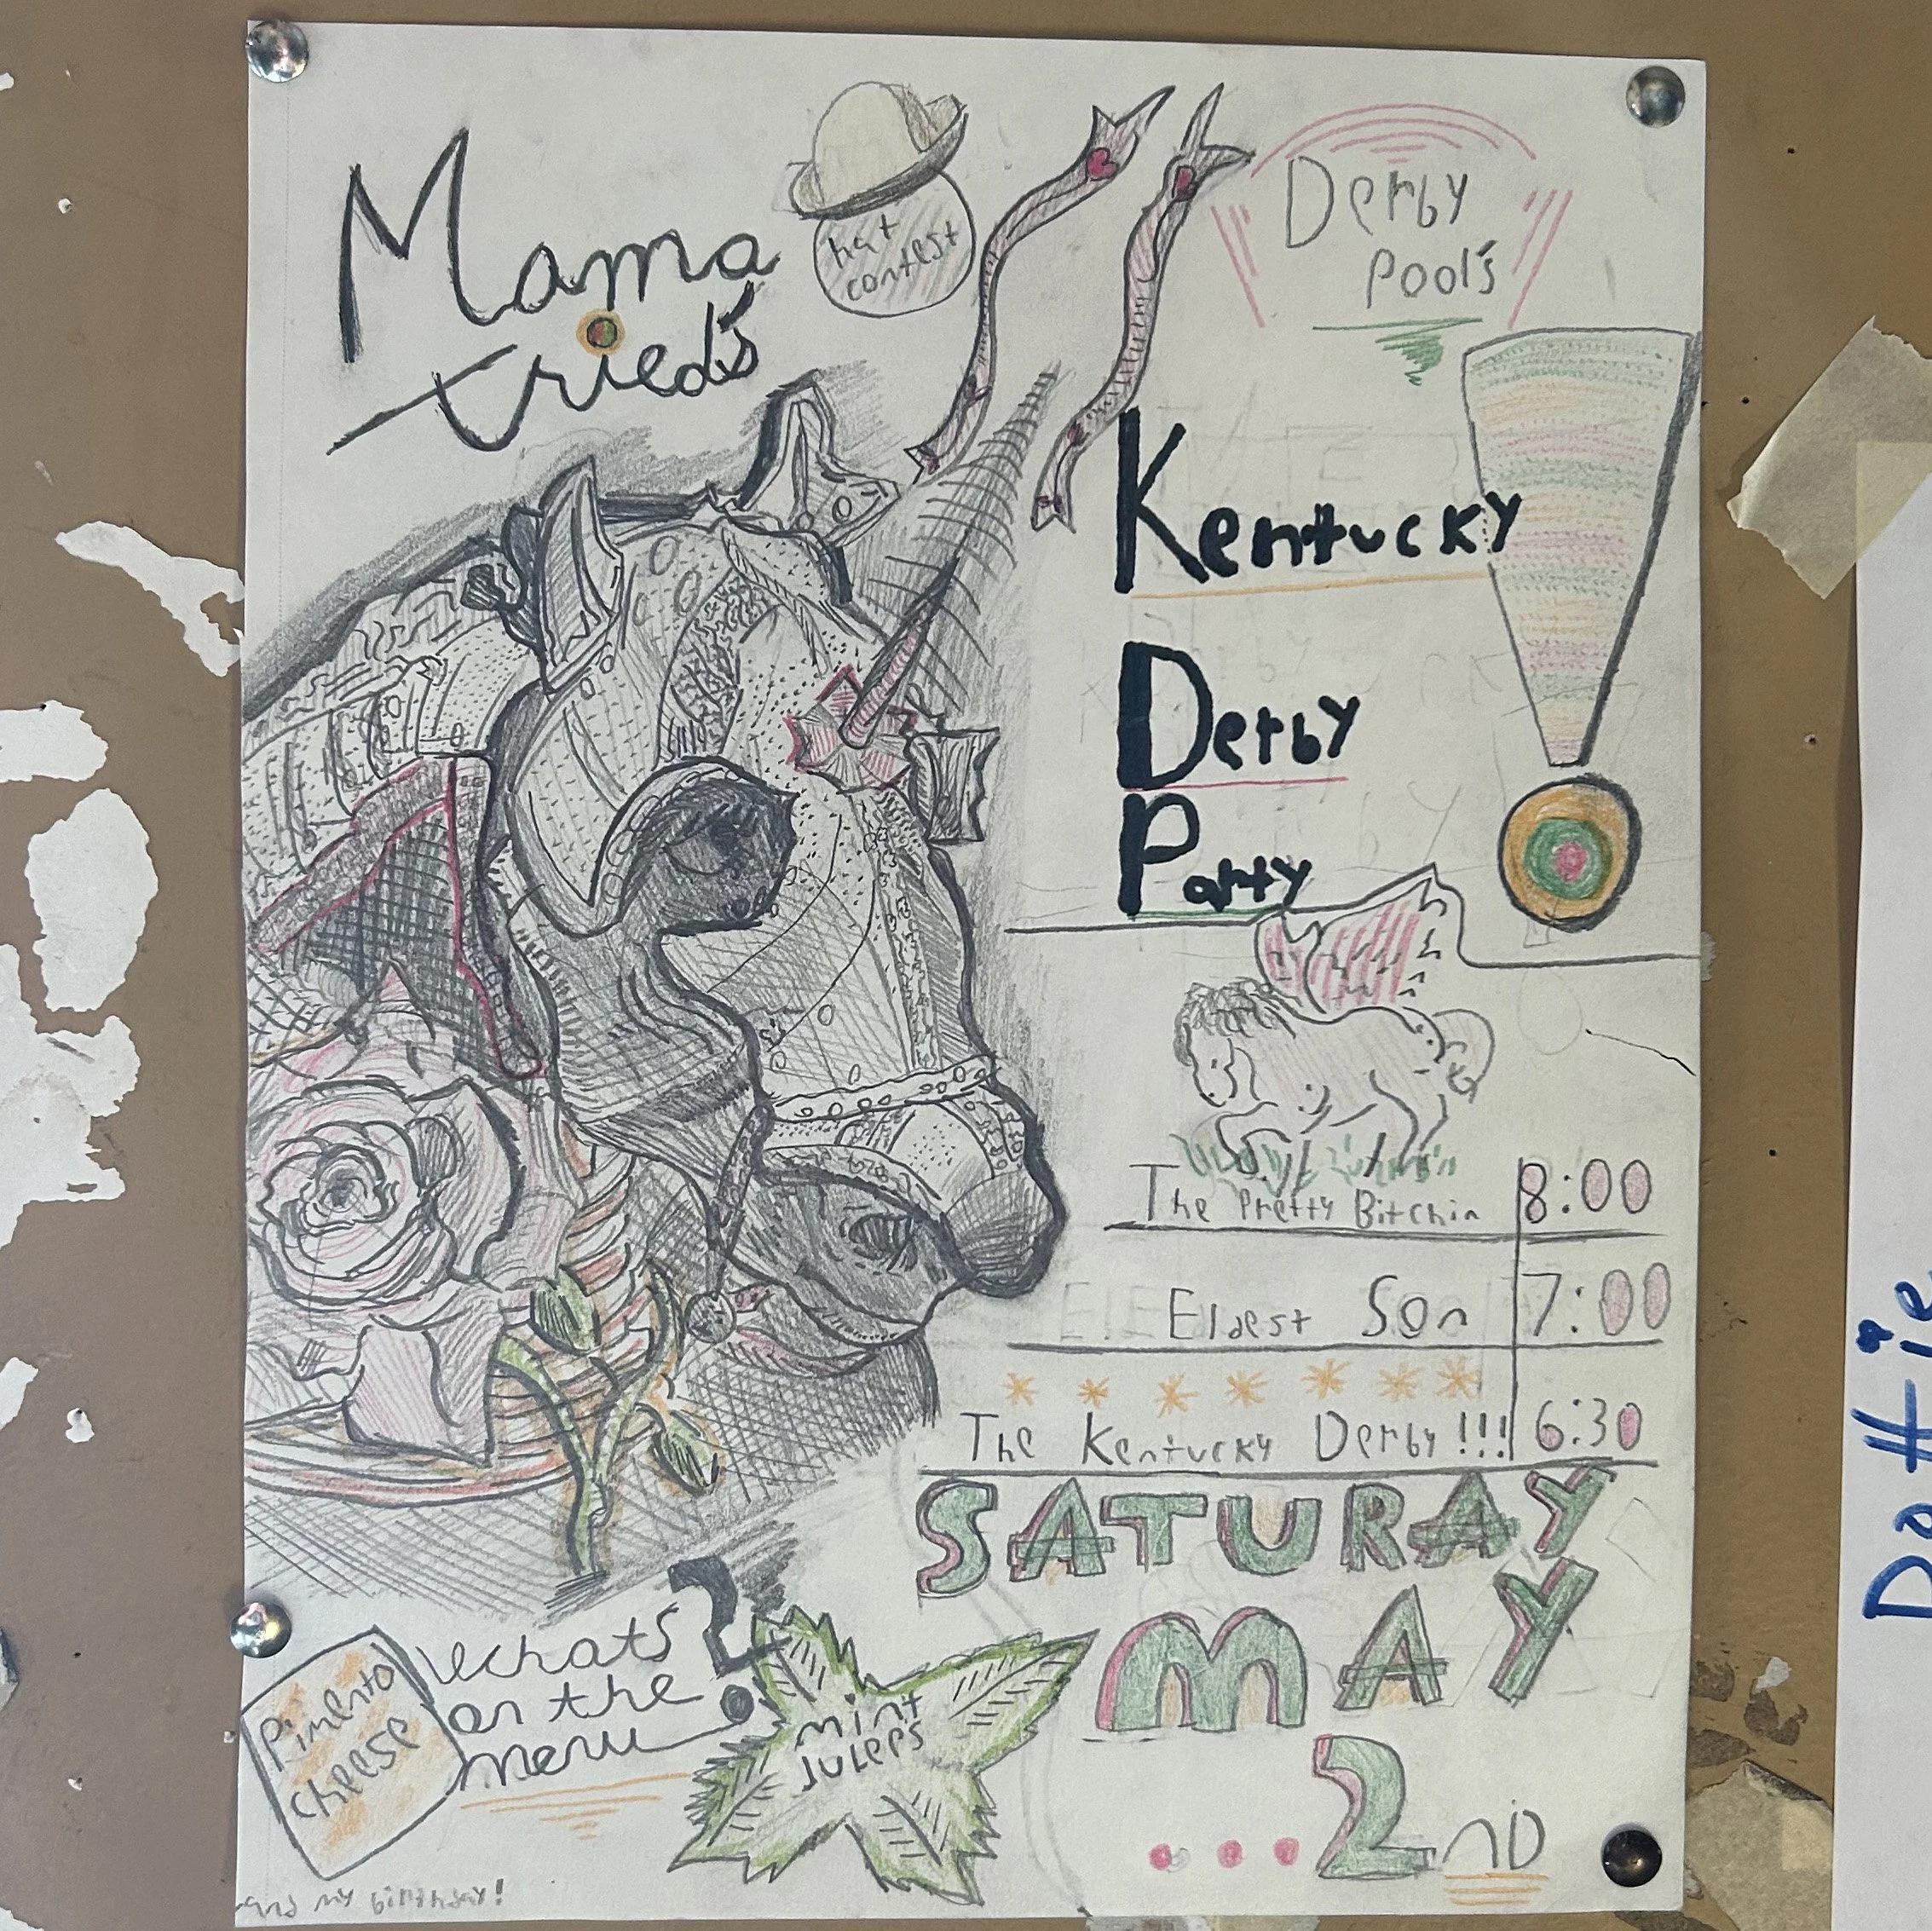 Mama
tried's
hat
contest
Derby
Pool's
Kentucky
Derby
Party
The Pretty Bitchin 8:00
Eldest Son 7:00
The Kentucky Derby!!! 6:30
SATURAY
MAY
...2ND
whats
on the
menu?
Pimento
cheese
mint
Juleps
and my birthday!
Dottie